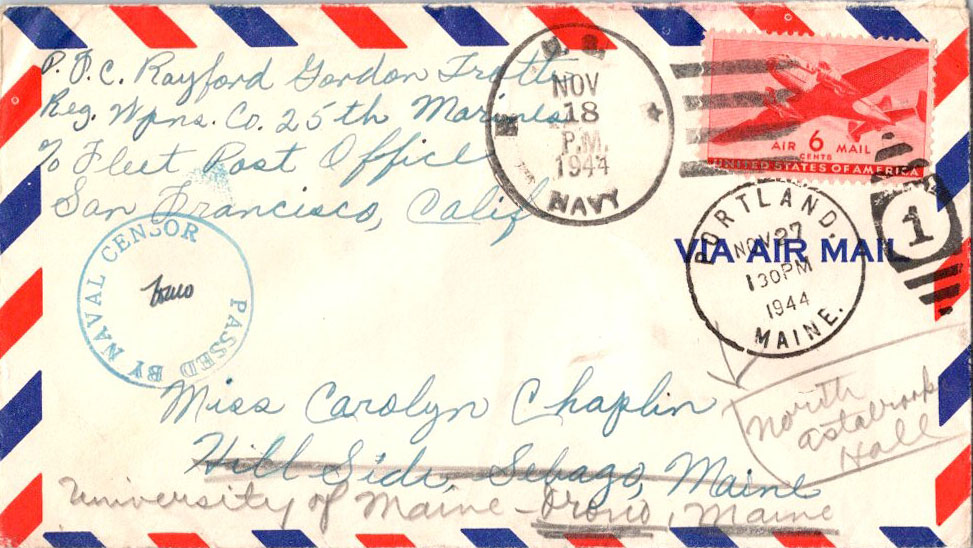 P.F.C. Rayford Gordon Trott
Reg. Wpns. Co. 25th Marines
℅ Fleet Post Office
San Francisco, Calif
U. S.
NOV
18
P.M.
1944
NAVY
AIR 6 MAIL
CENTS
UNITED STATES OF AMERICA
PORTLAND,
NOV 27
1 30 PM
1944
MAINE.
1
VIA AIR MAIL
PASSED BY NAVAL CENSOR
Miss Carolyn Chaplin
Hill Side, Sebago, Maine
University of Maine - Orono, Maine
North
Estabrook
Hall